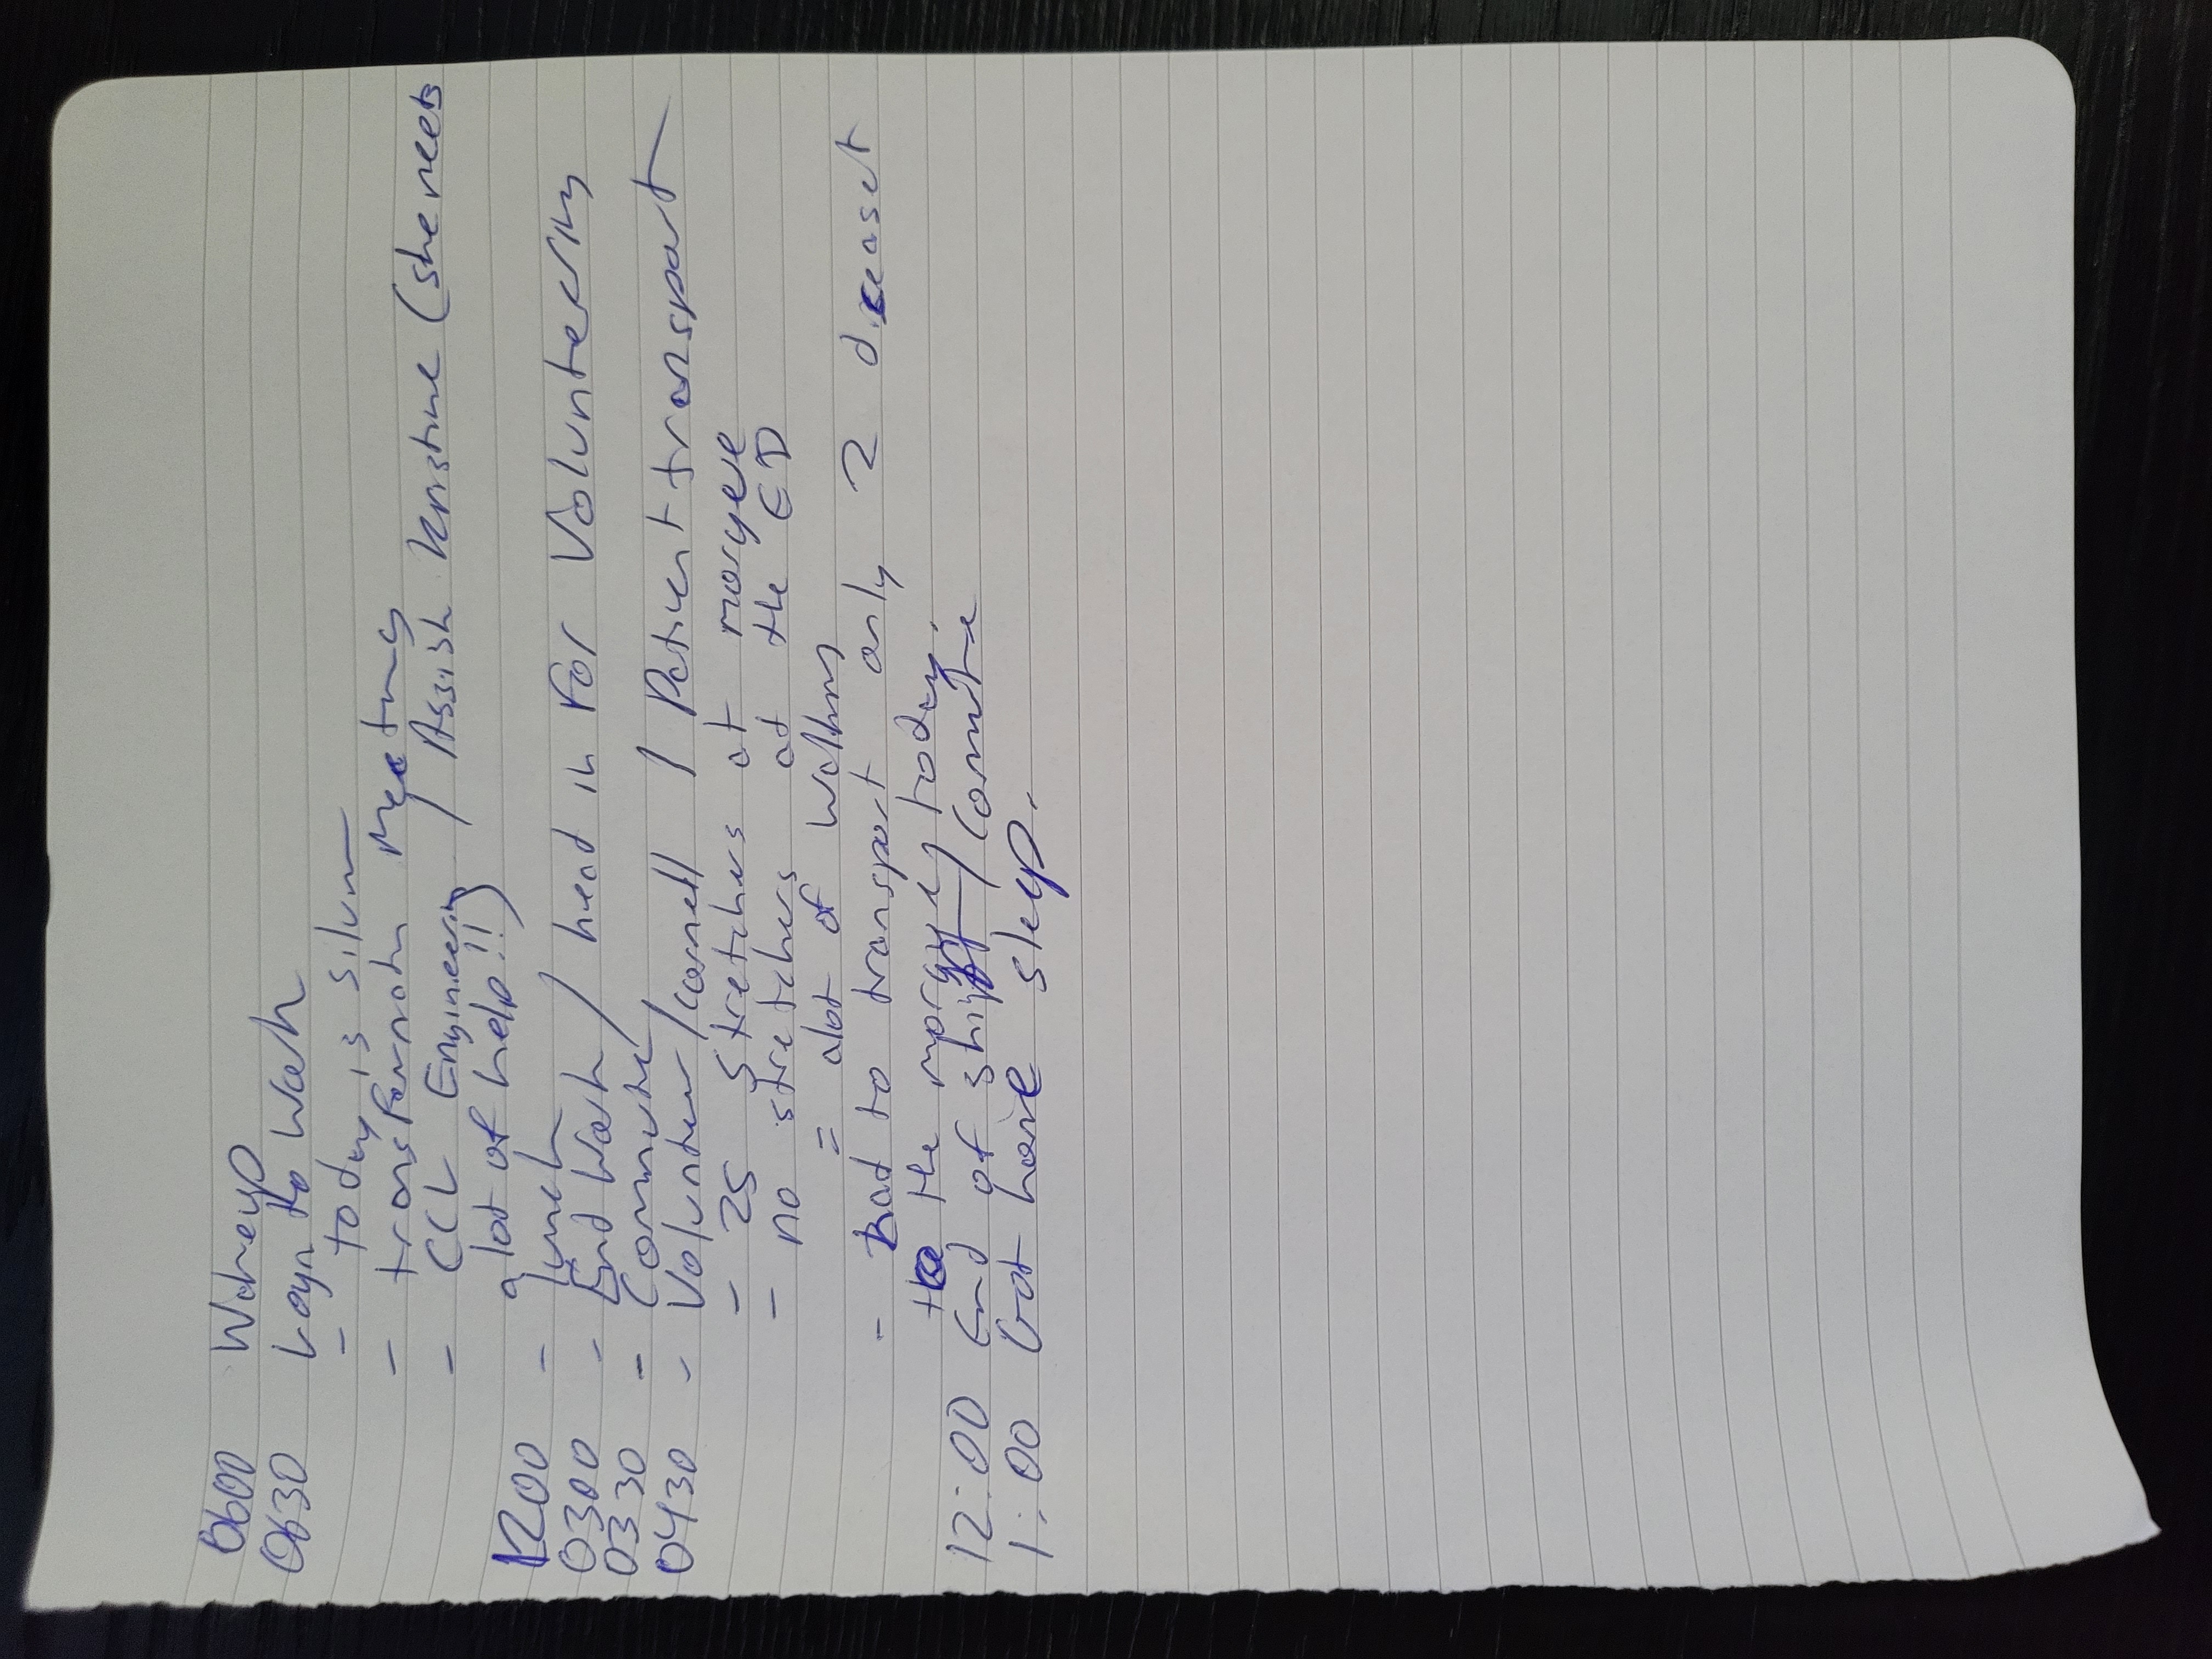 0600 Wakeup
0630 Login to Work
- today is silver
- transformation Meeting
- CCL Engineering / Assish Kristine (she needs
a lot of help!!)
1200 - lunch
0300 - End Work / head in For Volunteering
0330 - Commute
0430 - Volunteer/cornell / Patient transport
- 25 stretchers at morgue
- no stretchers at the ED
= alot of Walking
- had to transport only 2 diseaset
to the morgue, today.
12:00 End of shift / Commute
1:00 Got home sleep.